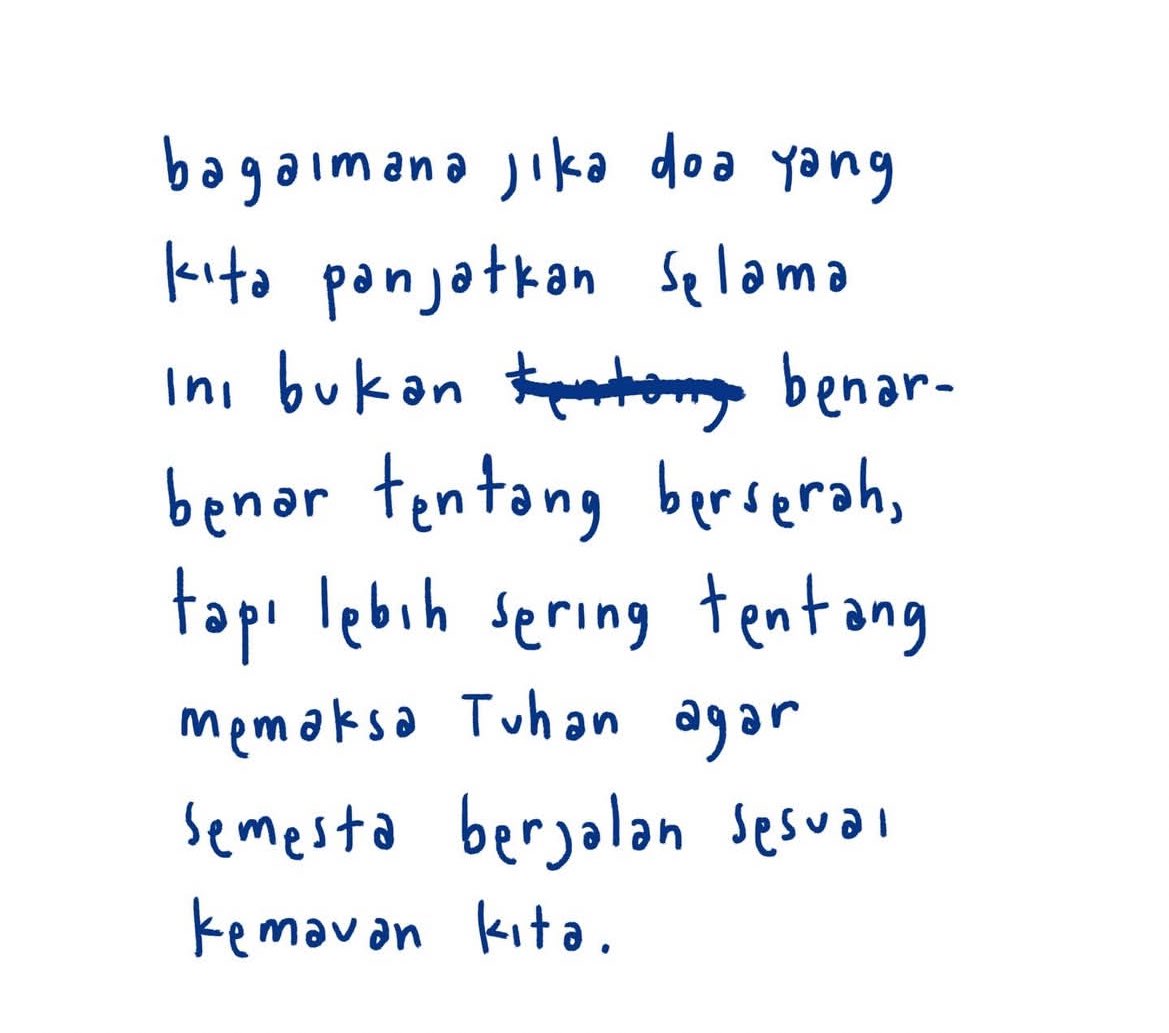 bagaimana jika doa yang
kita panjatkan selama
ini bukan tentang benar-
benar tentang berserah,
tapi lebih sering tentang
memaksa Tuhan agar
semesta berjalan sesuai
kemauan kita.